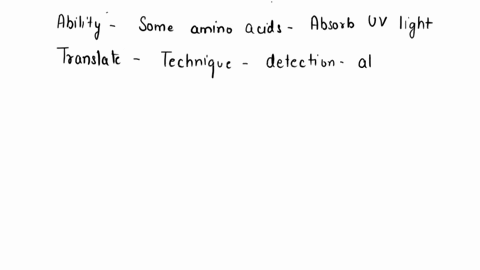 Ability - Some amino acids - Absorb UV light
Translate - Technique - detection - al